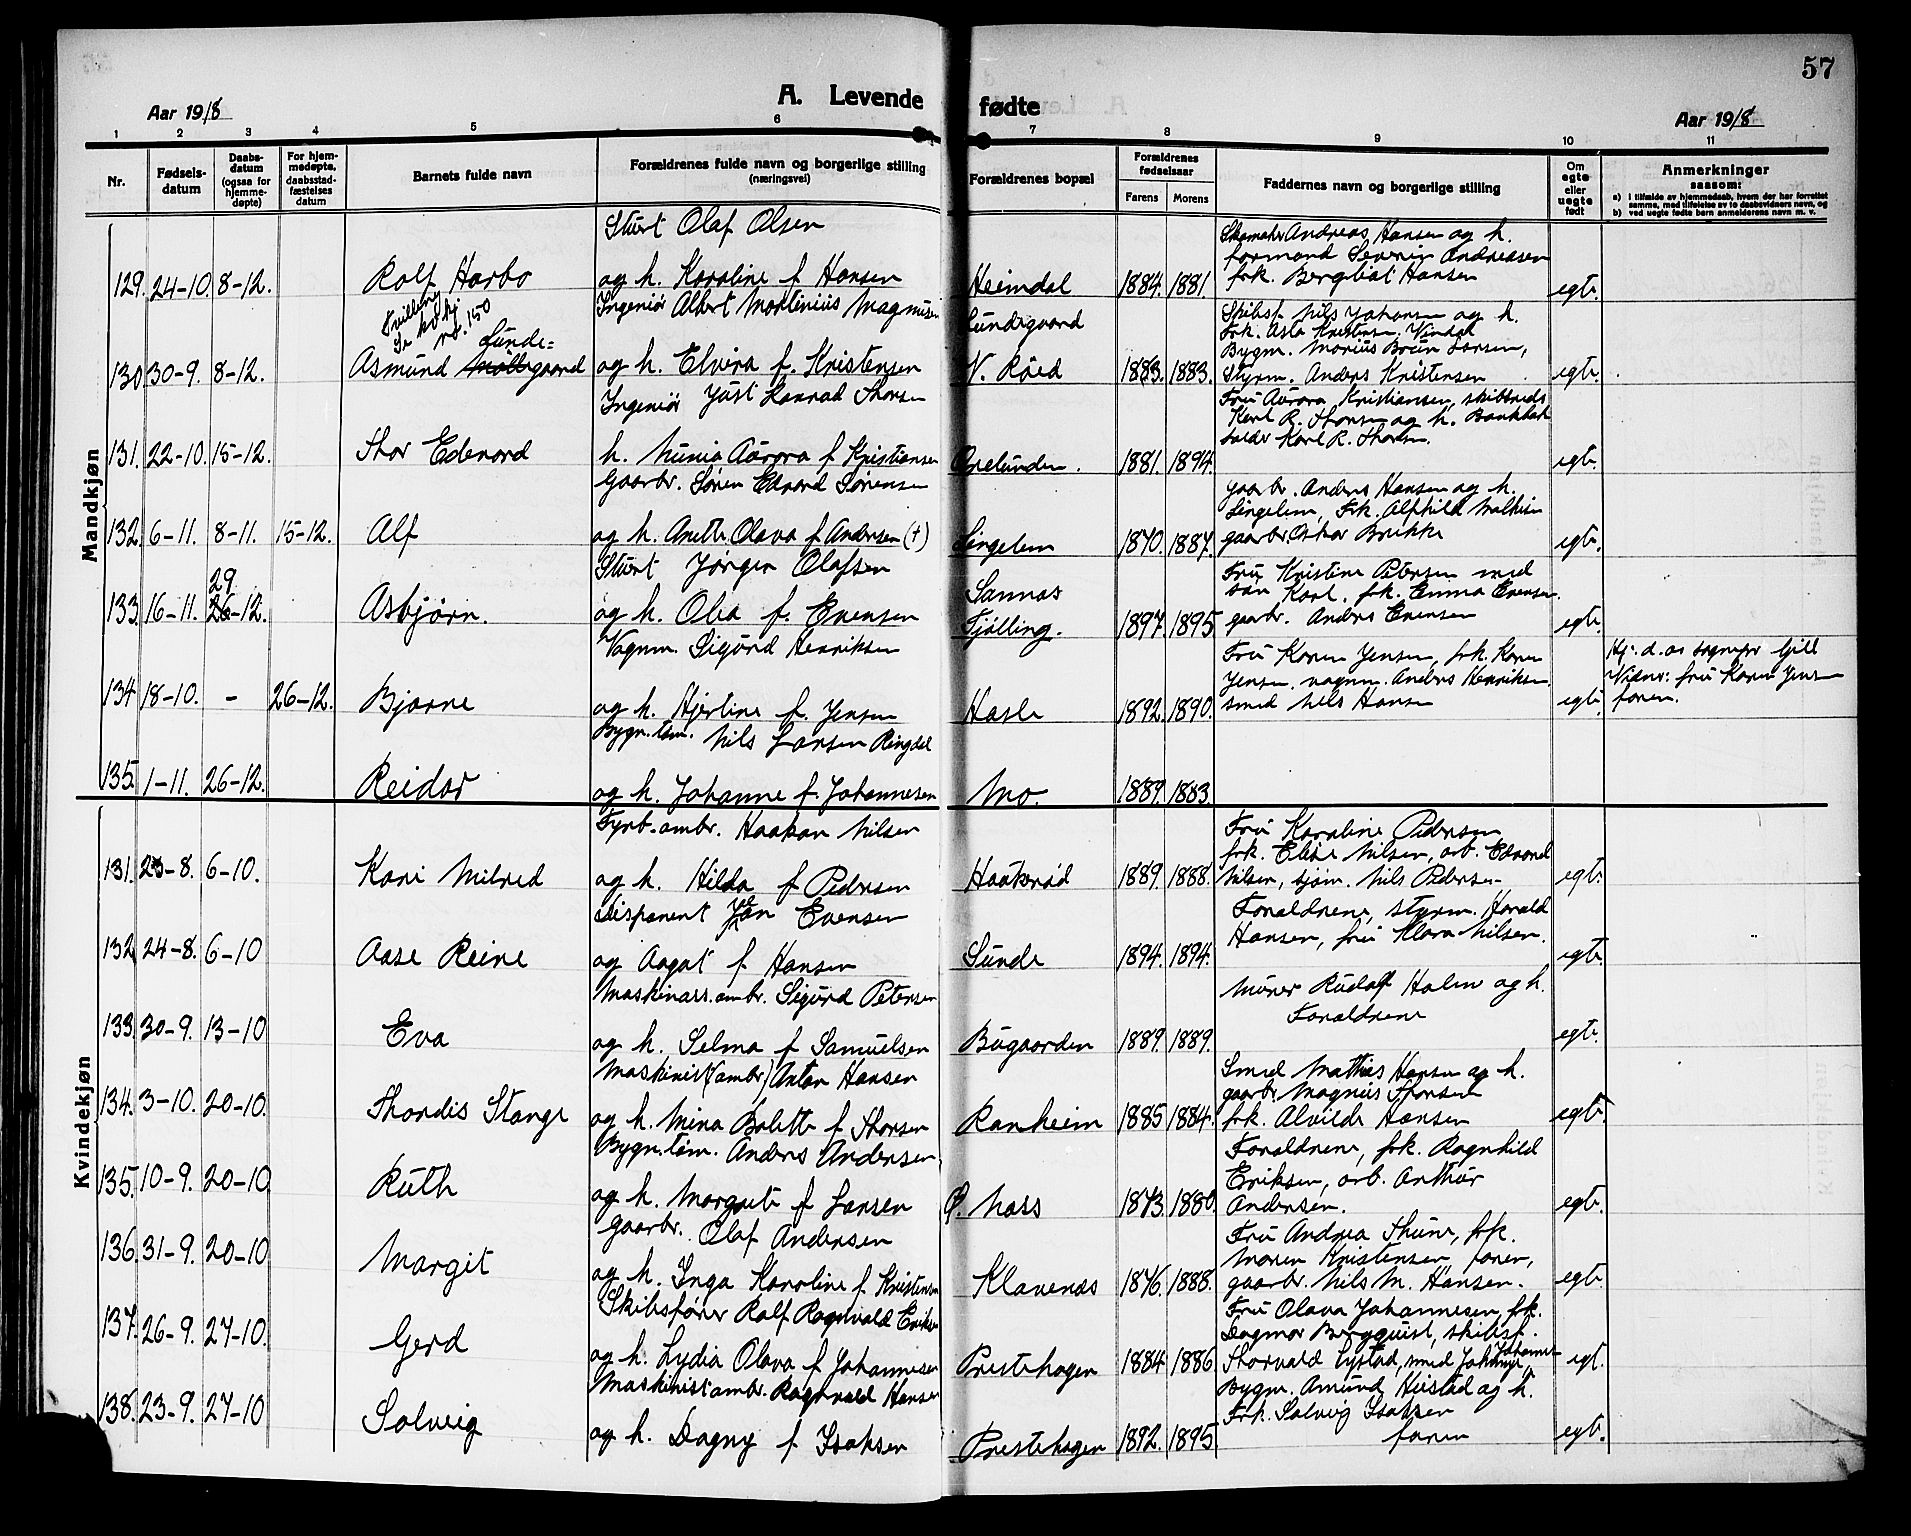 57
Aar 1918
A. Levende fødte
Aar 1918
1 2 3 4 5 6 7 8 9 10 11
Nr.
Fødsels-
datum
Daabs-
datum
(ogsaa for
hjemme-
døpte)
For hjem-
medøpte,
daabsstad-
fæstelses
datum
Barnets fulde navn
Forældrenes fulde navn og borgerlige stilling
(næringsvei)
Forældrenes bopæl
Forældrenes
fødselsaar
Farens
Morens
Faddernes navn og borgerlige stilling
Om
egte
eller
uegte
født
Anmerkninger
saasom:
a) i tilfælde av hjemmedaab, hvem der har forrettet
samme, med tilføielse av to daabsvidners navn, og
b) ved uegte fødte barn anmelderens navn m. v.
Mandkjøn
Stuert Olaf Olsen
129. 24-10. 8-12. Rolf Harbo og h. Karoline f. Hansen Heimdal 1884. 1881. egte.
Andreas Hansen og h.
formand Severin Andreasen
frk. Bergliot Hansen
Tvilling
Se kv.kj
nr. 150
Ingeniør Albert Martinius Magnusen
Lunde=
130 30-9. 8-12. Asmund gaard og h. Elvira f. Kristensen
Lundegaard
N. Røed 1883. 1883. egte.
Skibsf. Nils Johansen og h.
frk. Asta Kristensen, Vindal
Bygm. Marius Brun Larsen,
Styrm. Anders Kristensen
Ingeniør Just Konrad Thorsen
131. 22-10. 15-12. Thor Edvard h. Munia Aurora f. Kristiansen 1881. 1894. egte.
Fru Aurora Kristiansen, skibsreds
Karl R. Thorsen og h.
Karl R. Thorsen.
Gaarbr. Søren Edvard Sørensen
132. 6-11. 8-11. 15-12. Alf og h. Anette Olava f. Andersen (+) Lingelem 1870. 1887. egte.
gaarbr. Anders Hansen og h.
Lingelem, Frk. Alfhild
gaarbr. Oskar Brekke
Stuert Jørgen Olafsen
29
133. 16-11. 26-12. Asbjørn. og h. Olea f. Evensen
Sannas
Tjølling. 1897. 1895 egte.
Fru Kristine Petersen med
søn Karl, frk. Emma Evensen.
gaarbr. Anders Evensen
Vognm. Sigurd Henriksen
134 18-10. - 26-12. Bjarne og h. Hjertine f. Jensen Hasle 1892. 1890. egte.
Fru Karen Jensen, frk. Karen
Jensen, vognm. Anders Henriksen.
smed Nils Hansen
Hj. d. av sognepr
Vidner: fru Karen Jensen
faren.
Bygn.tøm. Nils Larsen Ringdal
135. 1-11. 26-12. Reidar og h. Johanne f. Johannesen Mo. 1889. 1883
Kvindekjøn
Fyrb. ambr. Haakon Nilsen
131. 23-8. 6-10. Kari Milred og h. Hilda f. Pedersen Haaksrød 1889. 1888. egte.
Fru Karoline Pedersen
frk. Elise Nilsen, arb. Edvard
Nilsen, sjøm. Nils Pedersen
Disponent Evensen
132 24-8. 6-10 Aase Reine og Aagot f. Hansen Sunde 1894. 1894. egte.
Forældrene, styrm. Harald
Hansen, fru Klara Nilsen.
Maskinass. ambr. Sigurd Petersen
133. 30-9. 13-10 Eva og h. Selma f. Samuelsen Bugaarden 1889. 1889. egte.
Murer Rudolf Holm og h.
Forældrene
Maskinist (ambr.) Anton Hansen
134. 3-10. 20-10. Thordis Stange og h. Mina Bolette f. Thorsen Ranheim 1885 1884. egte.
Smed Mathias Hansen og h.
gaarbr. Magnus Thorsen
frk. Alvilde Hansen
Bygn.tøm. Anders Andersen
135. 10-9. 20-10 Ruth og h. Margrete f. Larsen Ø. Nass 1873. 1880. egte.
Forældrene, frk. Ragnhild
Eriksen, arb. Arthur
Andersen.
gaarbr. Olaf Andersen
136. 31-9. 20-10 Margit og h. Inga Karoline f. Kristensen Klavenæs 1876. 1888. egte.
Fru Andrea Thune, frk.
Maren Kristensen, faren,
gaarbr. Nils M. Hansen.
Skibsfører Ralf Ragnvald Eriksen
137. 26-9. 27-10. Gerd og h. Lydia Olava f. Johannesen Prestehagen 1884 1886 egt.
Fru Olava Johannesen, frk.
Dagmar Bergquist, skibsf.
Thorvald Lystad, smed Johannesen
Maskinist ambr. Ragnvald Hansen
138. 23-9. 27-10 Solveig og h. Dagny f. Isaksen Prestehagen 1892. 1895 egte.
Bygm. Amund Hiestad og h.
Frk. Solveig Isaksen
faren